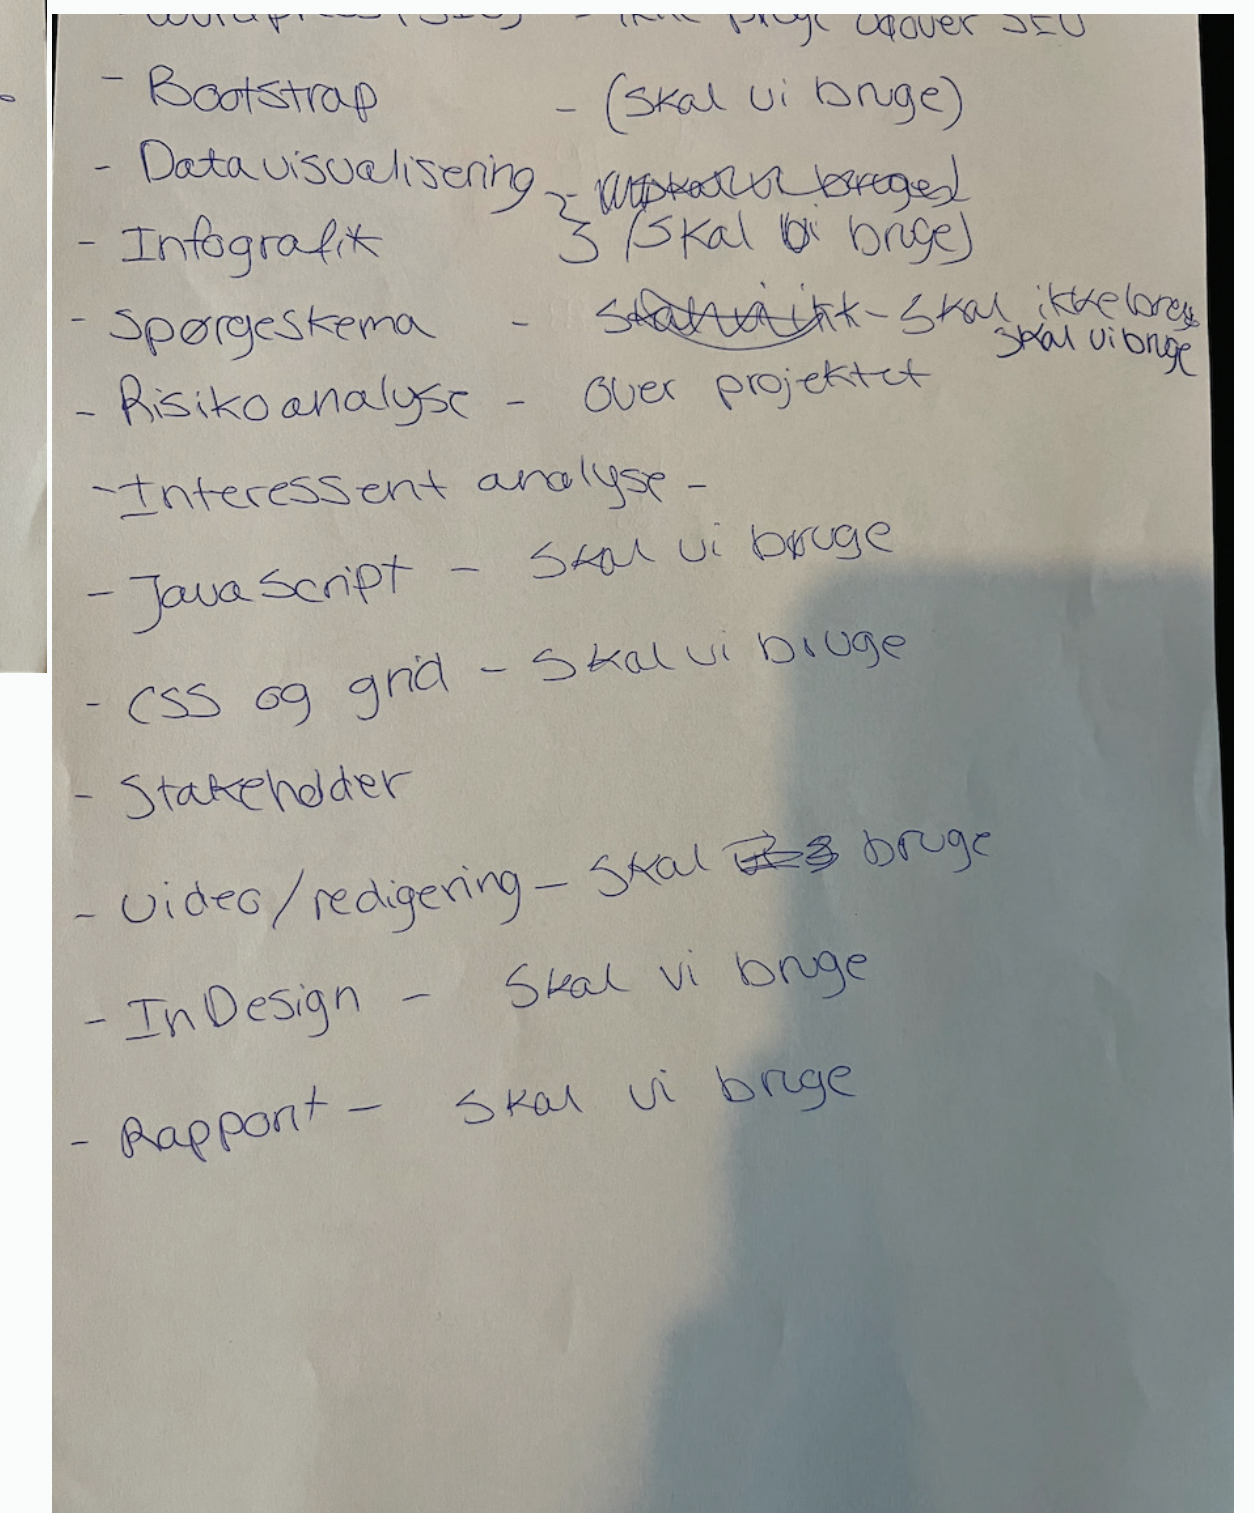 - Wordpress (SEO) - ikke bruge udover SEO
- Bootstrap - (Skal vi bruge)
- Datavisualisering -
- Infografik } (Skal vi bruge)
- Spørgeskema - - Skal ikke bruges
skal vi bruge
- Risikoanalyse - over projektet
- Interessent analyse -
- JavaScript - Skal vi bruge
- CSS og grid - Skal vi bruge
- Stakeholder
- Video/redigering - Skal bruge
- InDesign - Skal vi bruge
- Rapport - Skal vi bruge